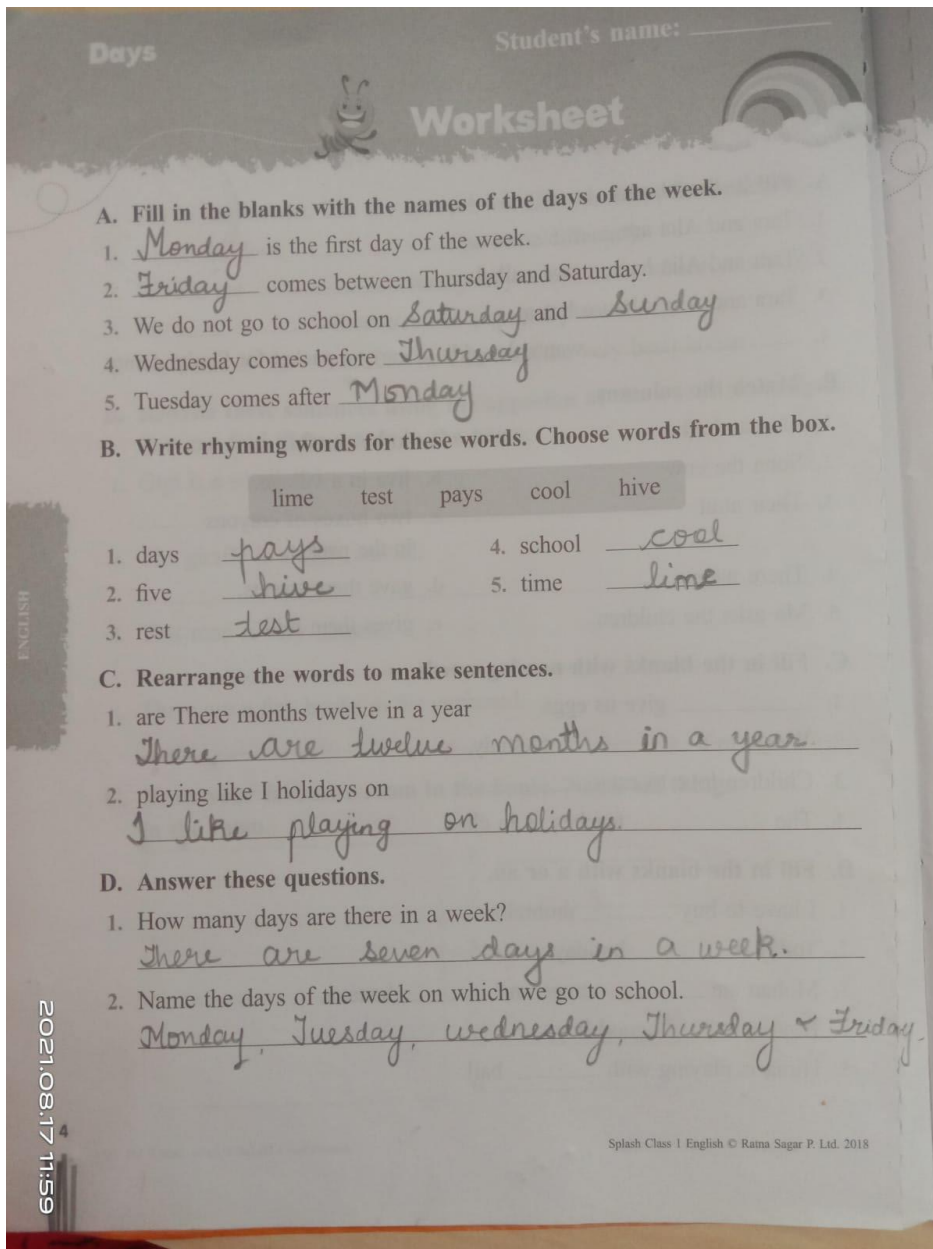 Days
Student's name:
Worksheet
A. Fill in the blanks with the names of the days of the week.
1. Monday is the first day of the week.
2. Friday comes between Thursday and Saturday.
3. We do not go to school on Saturday and Sunday
4. Wednesday comes before Thursday
5. Tuesday comes after Monday
B. Write rhyming words for these words. Choose words from the box.
lime test pays cool hive
1. days pays 4. school cool
2. five hive 5. time lime
3. rest test
C. Rearrange the words to make sentences.
1. are There months twelve in a year
There are twelve months in a year
2. playing like I holidays on
I like playing on holidays.
D. Answer these questions.
1. How many days are there in a week?
There are seven days in a week.
2. Name the days of the week on which we go to school.
Monday, Tuesday, wednesday, Thursday & Friday.
ENGLISH
4
Splash Class 1 English © Ratna Sagar P. Ltd. 2018
2021.08.17 11:59